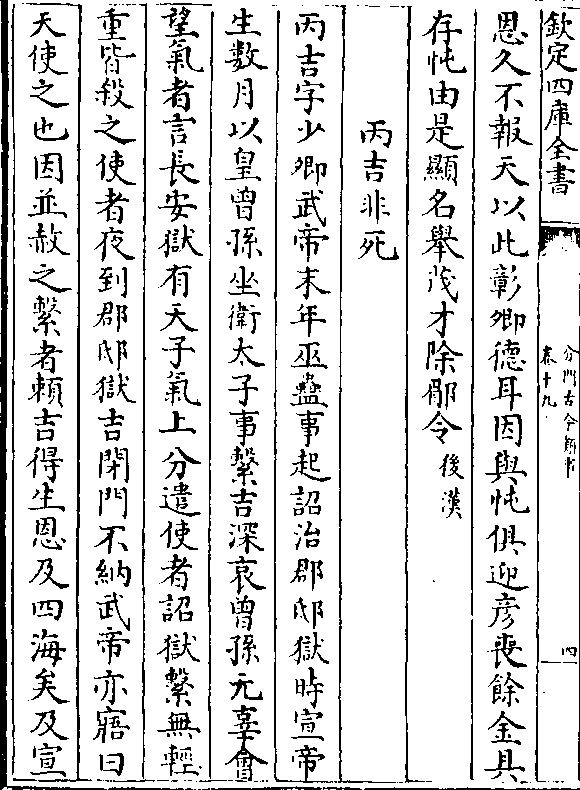 欽定四庫全書
分門古今類事
卷十九
四
恩久不報天以此彰卿德耳因與忳俱迎彦喪餘金具
存忳由是顯名舉茂才除郿令後漢
丙吉非死
丙吉字少卿武帝末年巫蠱事起詔治郡邸獄時宣帝
生數月以皇曾孫坐衛太子事繫吉深哀曾孫无辜會
望氣者言長安獄有天子氣上分遣使者詔獄繫無輕
重皆殺之使者夜到郡邸獄吉閉門不納武帝亦寤曰
天使之也因並赦之繫者頼吉得生恩及四海矣及宣